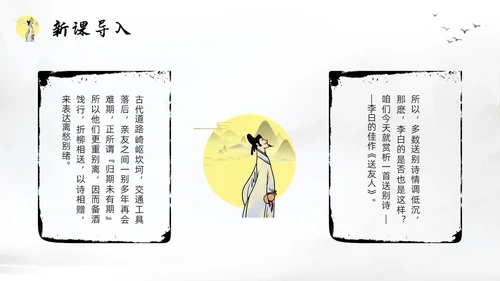 新课导入
古代道路崎岖坎坷，交通工具
落后，亲友之间一别多年再会
难期，正所谓『归期未有期』
所以他们更重别离，因而备酒
饯行，折柳相送，以诗相赠，
来表达离愁别绪。
所以，多数送别诗情调低沉，
那麽，李白的是否也是这样？
咱们今天就赏析一首送别诗—
—李白的佳作《送友人》。